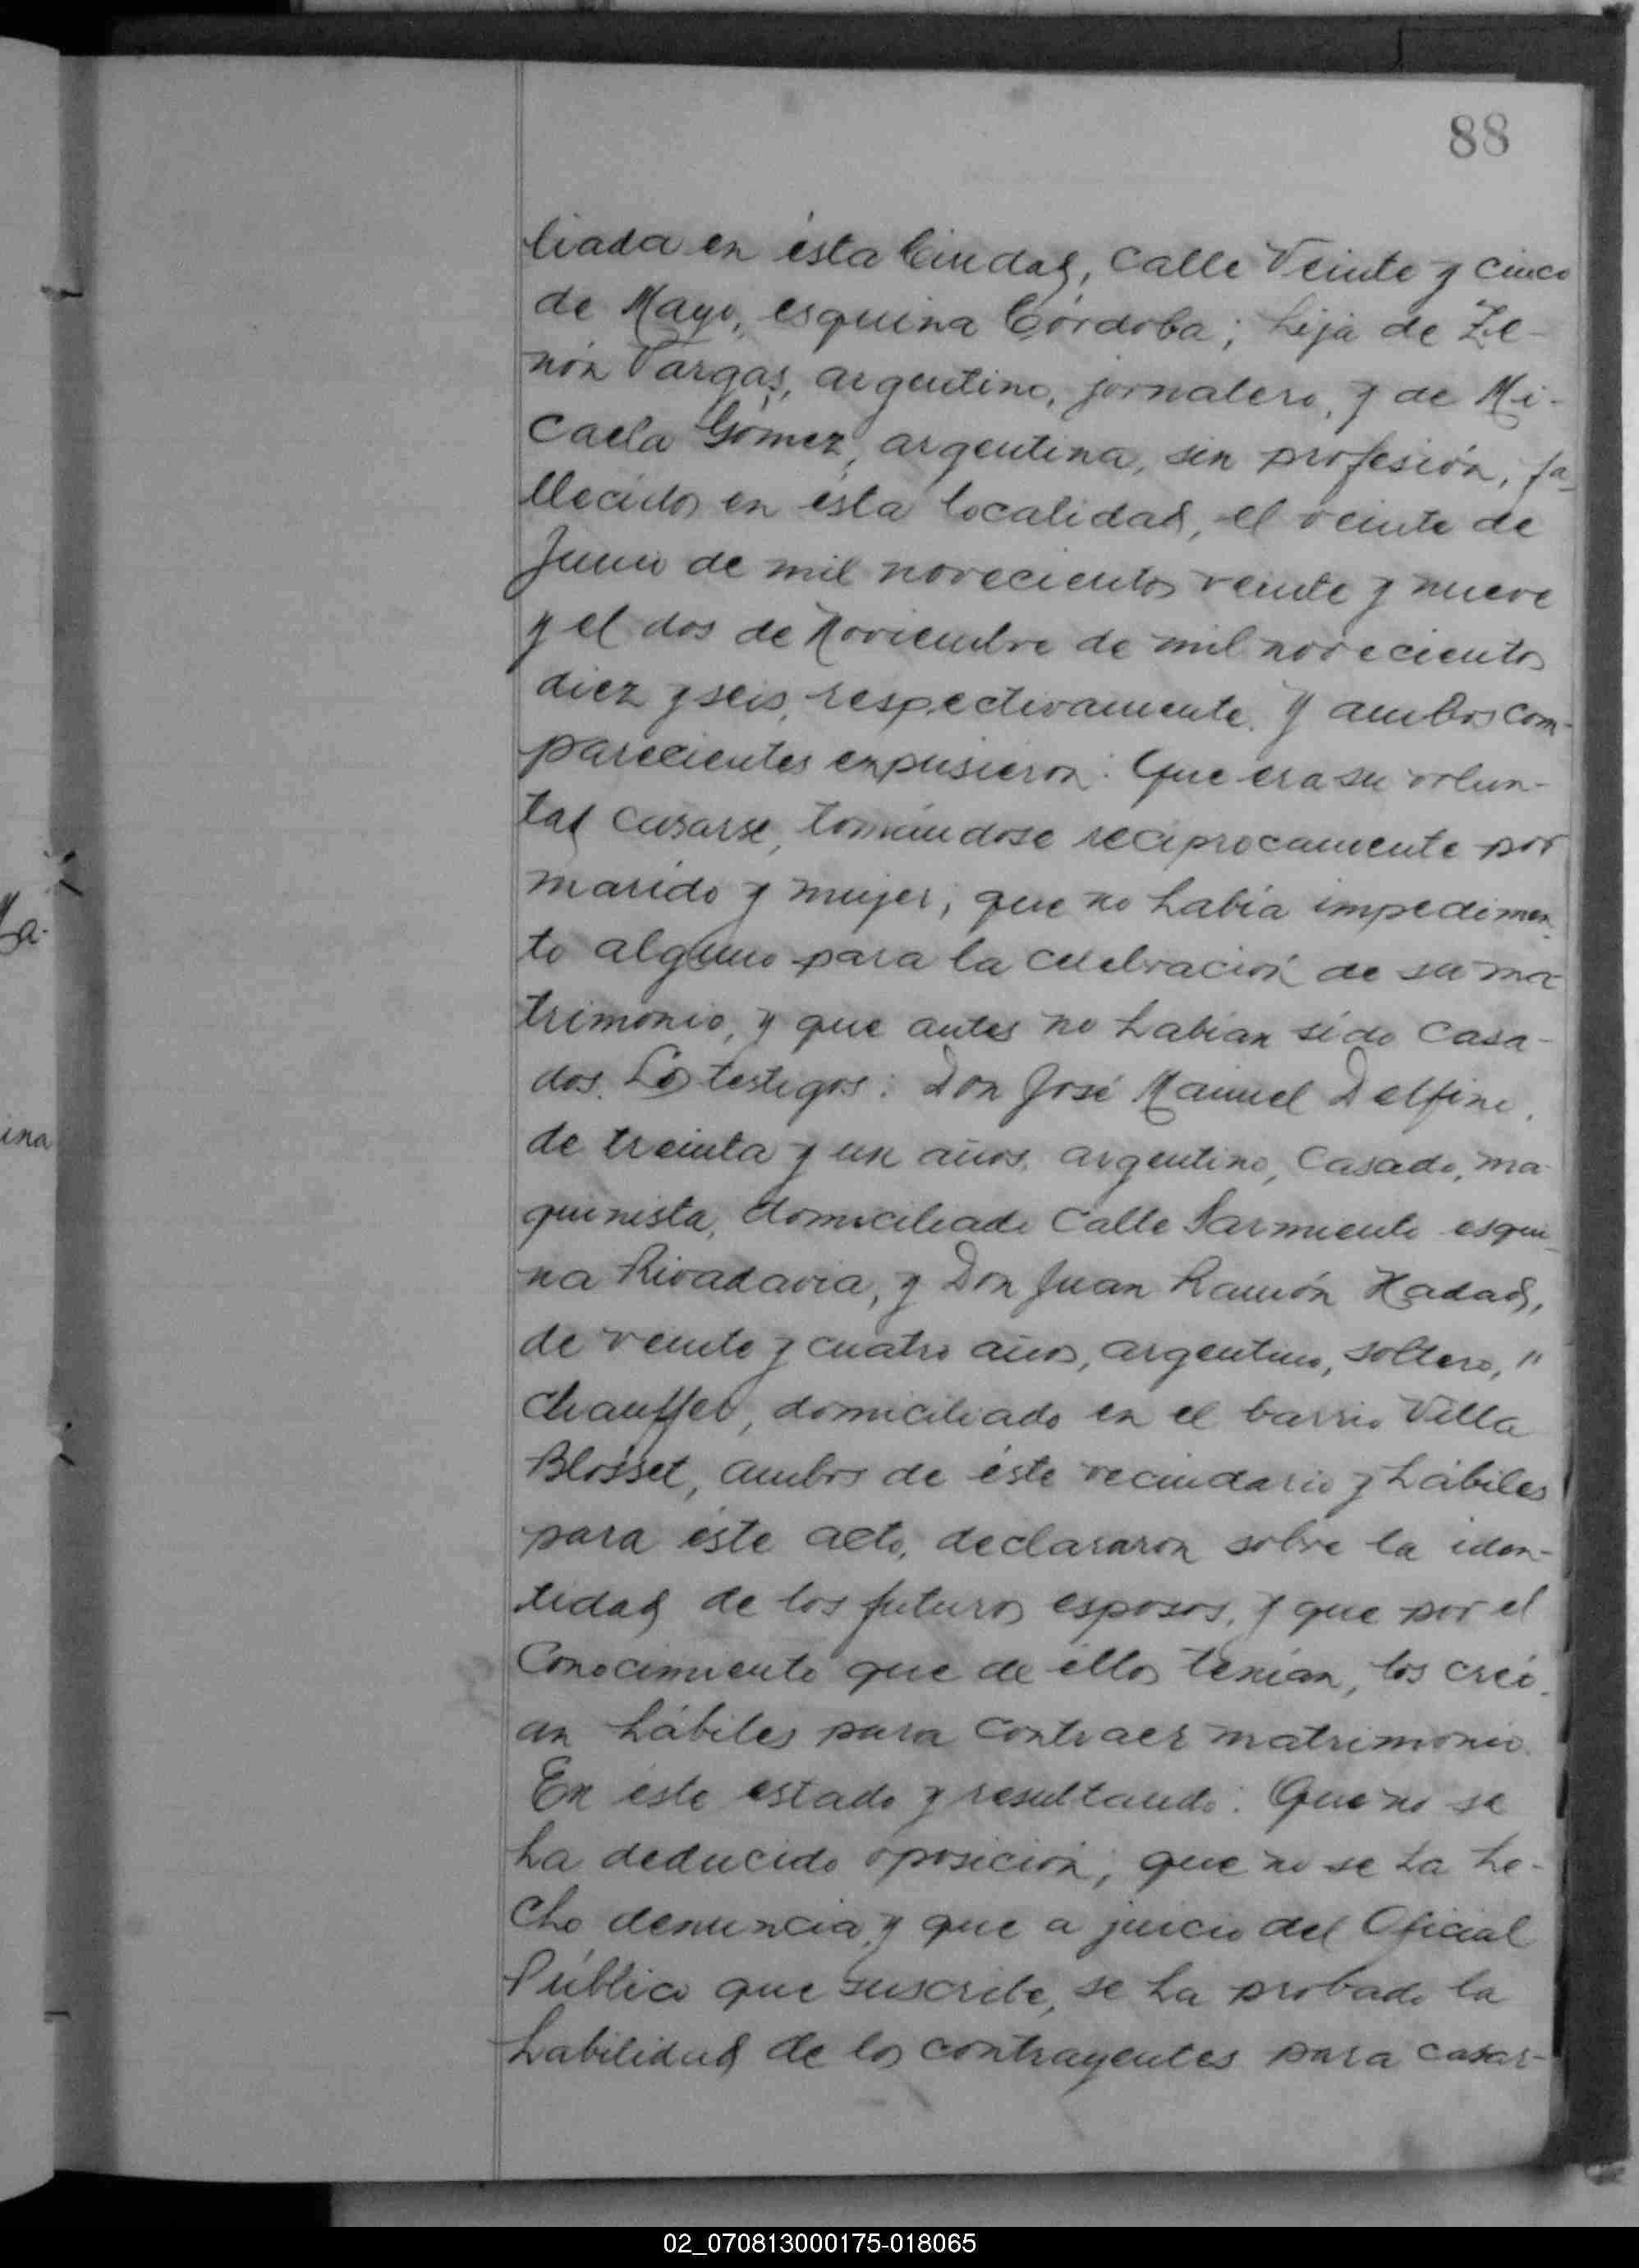 88
liada en ésta Ciudad, calle Veinte y cinco
de Mayo, esquina Córdoba; hija de Ze-
nón Vargas, argentino, jornalero, y de Mi-
caela Gómez, argentina, sin profesión, fa-
llecidos en ésta localidad, el veinte de
Junio de mil novecientos veinte y nueve
y el dos de Noviembre de mil novecientos
diez y seis, respectivamente. Y ambos com-
parecientes expusieron: Que era su volun-
tad casarse, tomándose reciprocamente por
marido y mujer; que no había impedimen-
to alguno para la celebración de su ma-
trimonio, y que antes no habían sido casa-
dos. Los testigos: Don José Manuel Delfino,
de treinta y un años, argentino, casado, ma-
quinista, domiciliado calle Sarmiento esqui-
na Rivadavia, y Don Juan Ramón Hadad,
de veinte y cuatro años, argentino, soltero, "
chauffer, domiciliado en el barrio Villa
Blosset, ambos de éste vecindario y hábiles
para éste acto, declararon sobre la iden-
tidad de los futuros esposos, y que por el
conocimiento que de éllos tenían, los creí-
an hábiles para contraer matrimonio.
En éste estado y resultando: Que no se
ha deducido oposición; que no se ha he-
cho denuncia y que a juicio del Oficial
Público que suscribe, se ha probado la
habilidad de los contrayentes para casar-
Ma-
ina
02_070813000175-018065